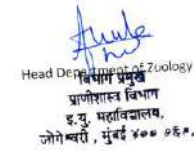 Head Department of Zuology
विभाग प्रमुख
प्राणीशास्त्र विभाग
इ.यु. महाविद्यालय,
जोगेश्वरी, मुंबई ४०० ०६०.